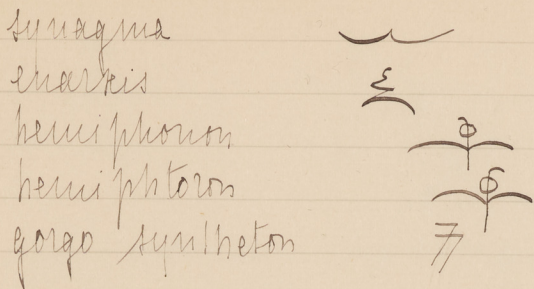 synagma
enarxis
hemiphonon
hemiphtoron
gorgo syntheton